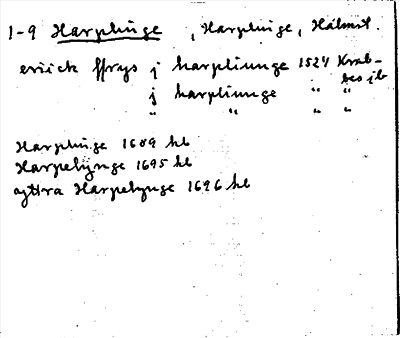 1-9 Harplinge , Harplinge, Halmst.
eriick ffrys j harpliunge 1524 Krab-
bes jb
j harpliunge " "
" " " "
Harplinge 1689 hl
Harpelynge 1695 hl
yttra Harpelynge 1696 hl